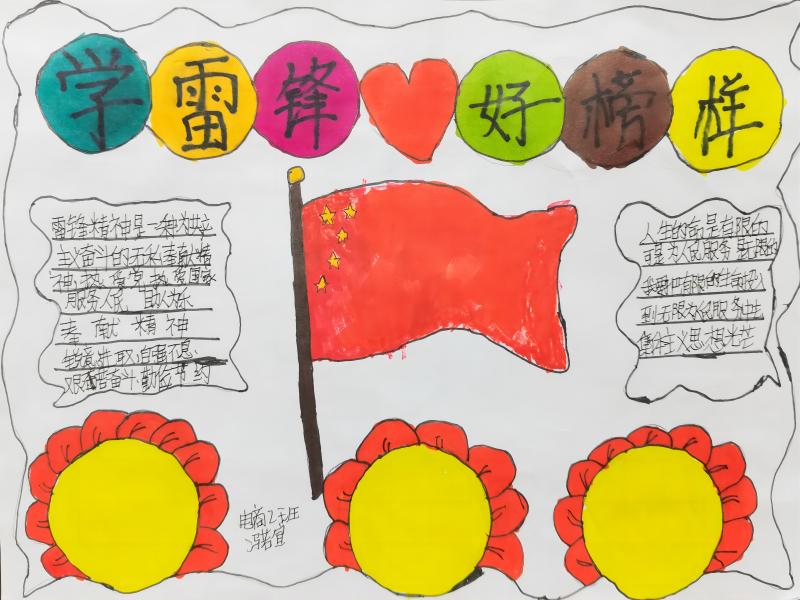 学雷锋好榜样
雷锋精神是一种为共产
主义奋斗的无私奉献精
神热爱党热爱国家
服务人民 助人为乐
奉献精神
锐意进取自强不息
艰苦奋斗勤俭节约
人生的命是有限的
可是为人民服务是无限的
我要把有限的生命投入
到无限为人民服务中
主义思想光芒
电商2班
冯若宜